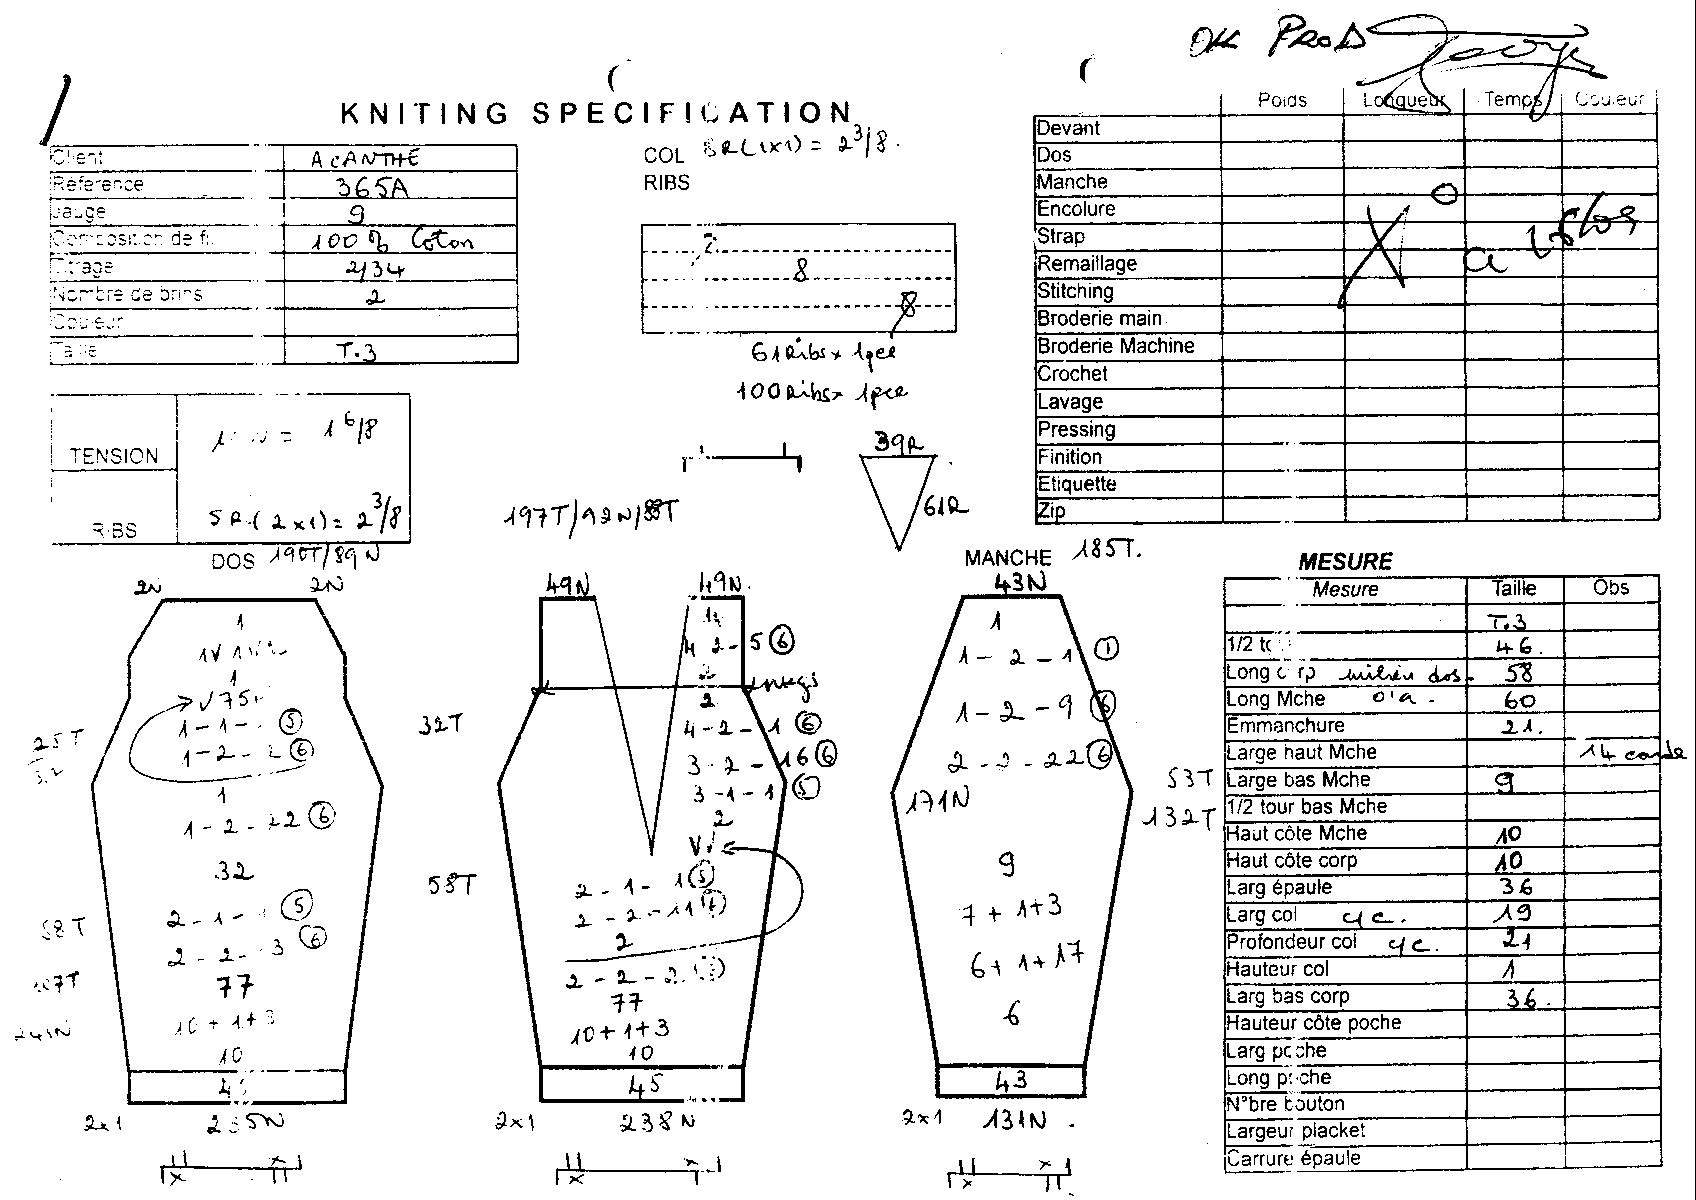 OK PROD
KNITING SPECIFICATION
Client ACANTHE
Réference 365A
Jauge 9
Composition de fil 100% Coton
Titrage 2/34
Nombre de brins 2
Couleur
Taille T.3
COL 5R(1x1) = 2 3/8.
RIBS
2
8
8
61Ribs x 1pce
100Ribs x 1pce
TENSION 1 6/8
RIBS 5R(2x1) = 2 3/8
39R
61R
Poids Longueur Temps Couleur
Devant
Dos
Manche
Encolure
Strap
Remaillage
Stitching
Broderie main
Broderie Machine
Crochet
Lavage
Pressing
Finition
Etiquette
Zip
DOS 190T/89N
2N 2N
1
1
1-1- 5
1-2- 6
25T
1
1-2-22 6
32
58T
2-1- 5
2-2- 3 6
77
10+1+3
10
2x1 235N
197T/92N/88T
49N 49N
4 2-5 6
2
2
32T
4-2-1 6
3-2-16 6
3-1-1 5
2
58T
2-1-1 5
2-2-11
2
2-2-2
77
10+1+3
10
45
2x1 238N
MANCHE 185T.
43N
1
1-2-1 1
1-2-9 6
2-2-22 6
53T
171N
132T
9
7+1+3
6+1+17
6
43
2x1 131N.
MESURE
Mesure Taille Obs
T.3
1/2 to 46.
Long corp milieu dos 58
Long Mche 60
Emmanchure 21.
Large haut Mche 14
Large bas Mche 9
1/2 tour bas Mche
Haut côte Mche 10
Haut côte corp 10
Larg épaule 36
Larg col 19
Profondeur col 21
Hauteur col 1
Larg bas corp 36.
Hauteur côte poche
Larg poche
Long poche
N°bre bouton
Largeur placket
Carrure épaule